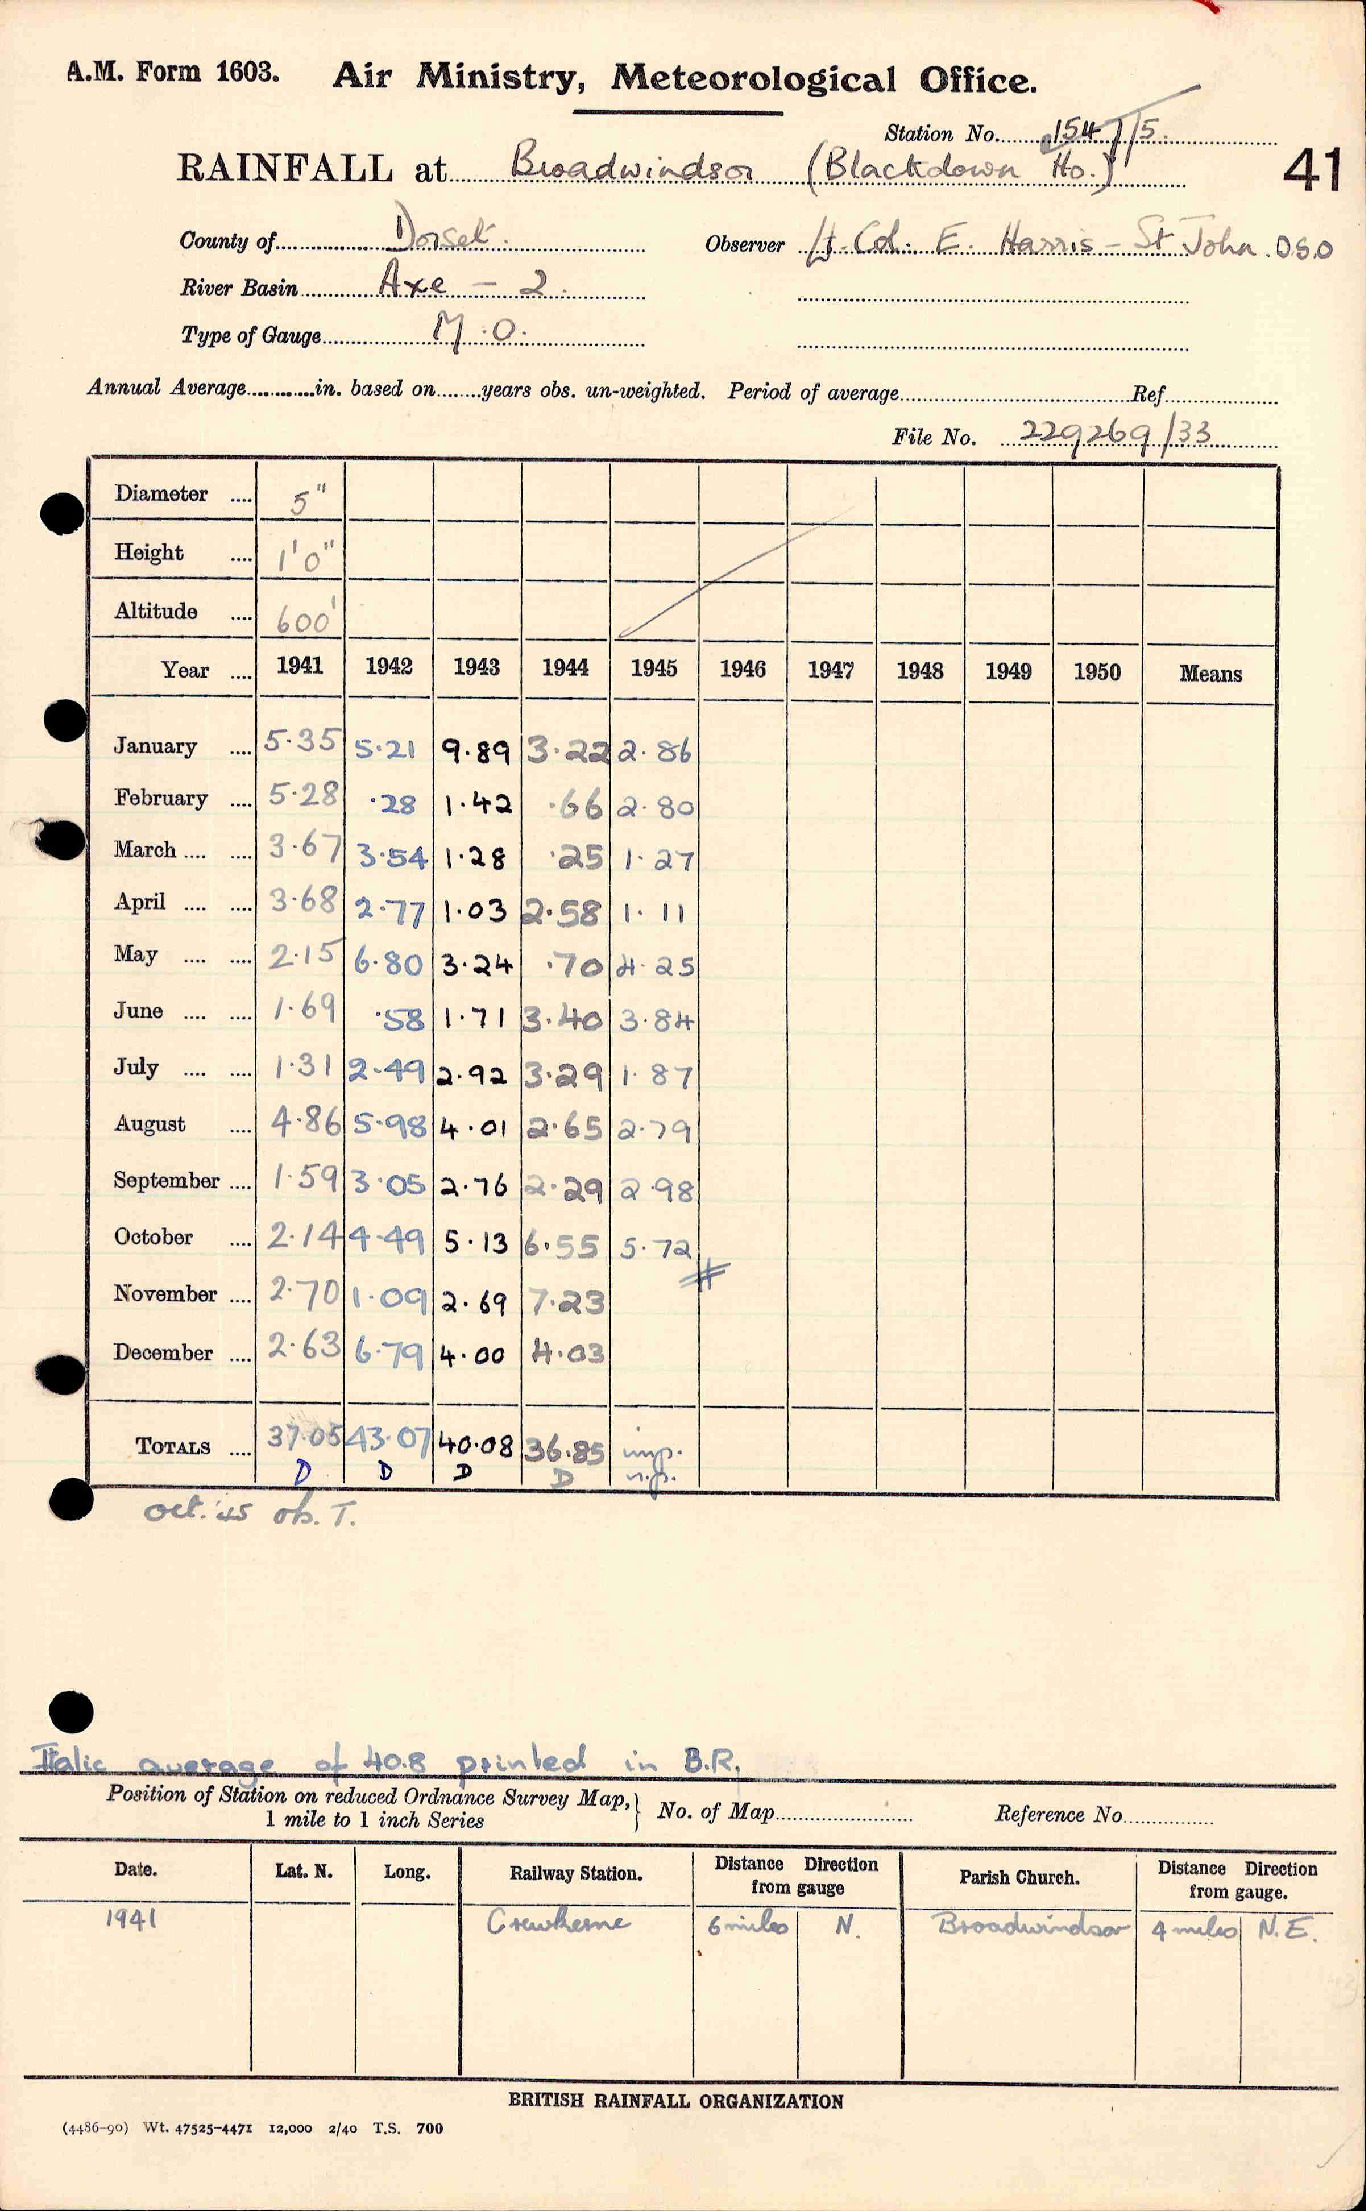 A.M. Form 1603. Air Ministry, Meteorological Office.
Station No. 154/15.
RAINFALL at Broadwindsor (Blackdown Ho.) 41
County of Dorset. Observer Lt. Col. E. Harris-St John. D.S.O
River Basin Axe - 2.
Type of Gauge M.O.
Annual Average in. based on years obs. un-weighted. Period of average Ref.
File No. 229269/33
Diameter .... 5"
Height .... 1'0"
Altitude .... 600'
Year .... 1941 1942 1943 1944 1945 1946 1947 1948 1949 1950 Means
January .... 5.35 5.21 9.89 3.22 2.86
February .... 5.28 .28 1.42 .66 2.80
March .... .... 3.67 3.54 1.28 .25 1.27
April .... .... 3.68 2.77 1.03 2.58 1.11
May .... .... 2.15 6.80 3.24 .70 4.25
June .... .... 1.69 .58 1.71 3.40 3.84
July .... .... 1.31 2.49 2.92 3.29 1.87
August .... 4.86 5.98 4.01 2.65 2.79
September .... 1.59 3.05 2.76 2.29 2.98
October .... 2.14 4.49 5.13 6.55 5.72
November .... 2.70 1.09 2.69 7.23
December .... 2.63 6.79 4.00 4.03
TOTALS .... 37.05 43.07 40.08 36.85 imp.
D D D D n.p.
Oct. '45 ob. T.
Italic average of 40.8 printed in B.R.
Position of Station on reduced Ordnance Survey Map, } No. of Map Reference No.
1 mile to 1 inch Series
Date. Lat. N. Long. Railway Station. Distance Direction from gauge Parish Church. Distance Direction from gauge.
1941 Crewkerne 6 miles N. Broadwindsor 4 miles N.E.
BRITISH RAINFALL ORGANIZATION
(4486-90) Wt. 47525-4471 12,000 2/40 T.S. 700